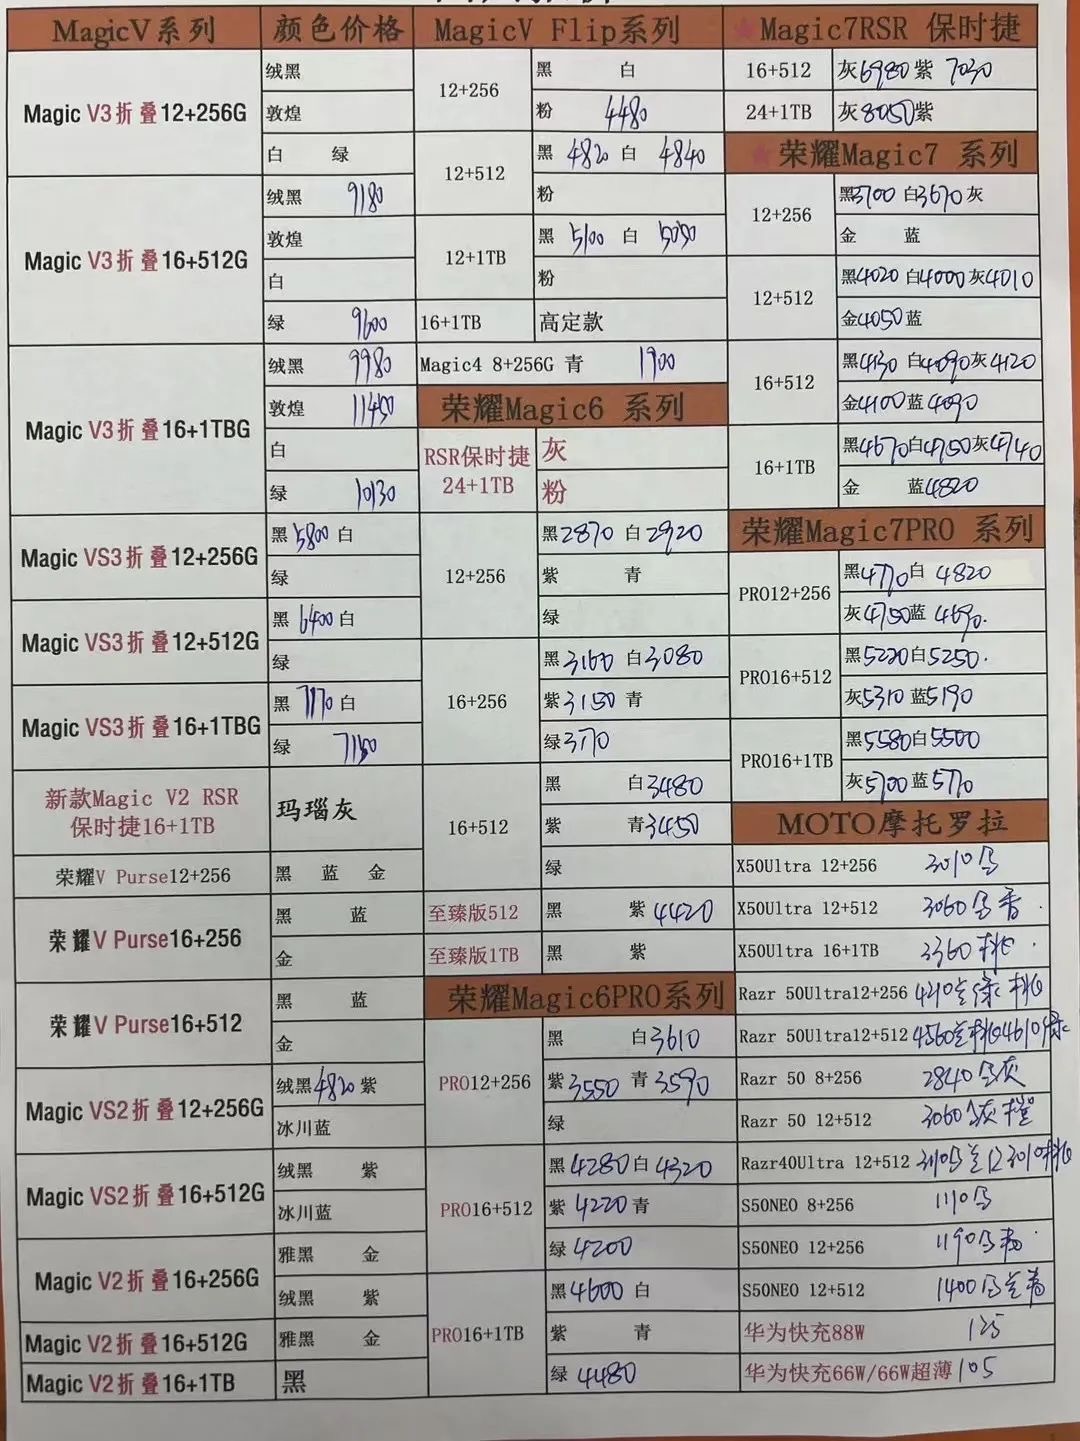 MagicV系列 颜色价格
Magic V3折叠12+256G
绒黑
敦煌
白 绿
Magic V3折叠16+512G
绒黑 9180
敦煌
白
绿 9600
Magic V3折叠16+1TBG
绒黑 9980
敦煌 11450
白
绿 10130
Magic VS3折叠12+256G
黑 5800 白
绿
Magic VS3折叠12+512G
黑 6400 白
绿
Magic VS3折叠16+1TBG
黑 7170 白
绿 7150
新款Magic V2 RSR
保时捷16+1TB
玛瑙灰
荣耀V Purse12+256 黑 蓝 金
荣耀V Purse16+256
黑 蓝
金
荣耀V Purse16+512
黑 蓝
金
Magic VS2折叠12+256G
绒黑4820 紫
冰川蓝
Magic VS2折叠16+512G
绒黑 紫
冰川蓝
Magic V2折叠16+256G
雅黑 金
绒黑 紫
Magic V2折叠16+512G 雅黑 金
Magic V2折叠16+1TB 黑
MagicV Flip系列
12+256
黑 白
粉 4480
12+512
黑 4820 白 4840
粉
12+1TB
黑 5100 白 5050
粉
16+1TB 高定款
Magic4 8+256G 青 1900
荣耀Magic6 系列
RSR保时捷
24+1TB
灰
粉
12+256
黑2870 白2920
紫 青
绿
16+256
黑3160 白3080
紫3150 青
绿3170
16+512
黑 白3480
紫 青3450
绿
至臻版512 黑 紫 4420
至臻版1TB 黑 紫
荣耀Magic6PRO系列
PRO12+256
黑 白3610
紫3550 青3590
绿
PRO16+512
黑4280白4320
紫4220青
绿4200
PRO16+1TB
黑4600 白
紫 青
绿 4480
Magic7RSR 保时捷
16+512 灰6980紫 7030
24+1TB 灰8050紫
荣耀Magic7 系列
12+256
黑3700 白3670灰
金 蓝
12+512
黑4020 白4000灰4010
金4050蓝
16+512
黑4130 白4090灰4120
金4100蓝4090
16+1TB
黑4670白4750灰4740
金 蓝4820
荣耀Magic7PRO 系列
PRO12+256
黑4770白 4820
灰4750蓝 4690.
PRO16+512
黑5220白5250.
灰5310 蓝5190
PRO16+1TB
黑5580白5500
灰5700蓝5770
MOTO摩托罗拉
X50Ultra 12+256 3010
X50Ultra 12+512 3060
X50Ultra 16+1TB 3360 桃
Razr 50Ultra12+256 桃
Razr 50Ultra12+512 4560
Razr 50 8+256 2840
Razr 50 12+512 3060
Razr40Ultra 12+512
S50NEO 8+256 1110
S50NEO 12+256 1190
S50NEO 12+512 1400
华为快充88W 125
华为快充66W/66W超薄 105